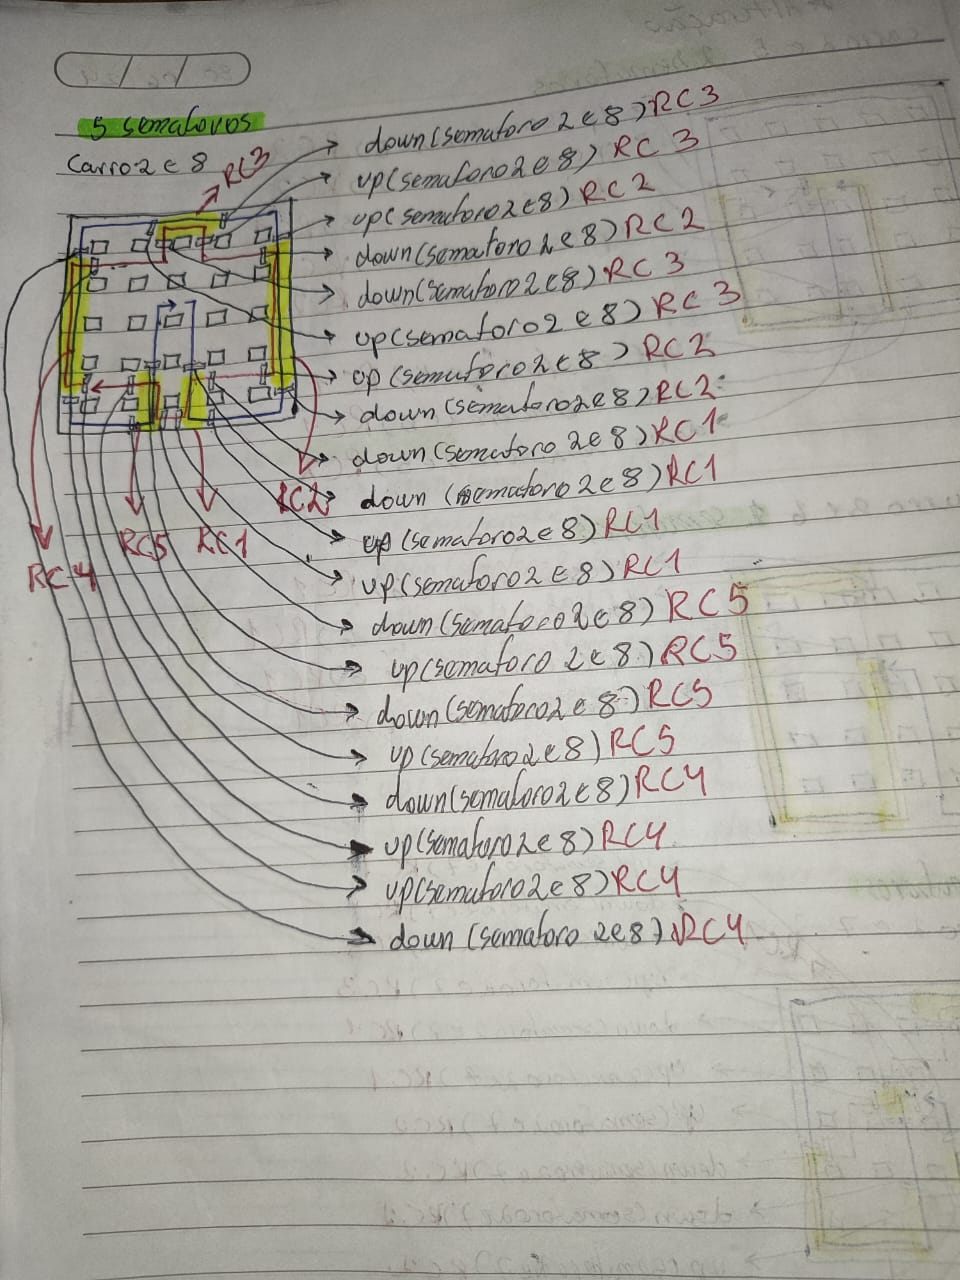 5 semaforos
Carro 2 e 8
RC3
down(semaforo 2 e 8) RC3
up(semaforo 2 e 8) RC 3
up(semaforo 2 e 8) RC 2
down(semaforo 2 e 8) RC 2
down(semaforo 2 e 8) RC 3
up(semaforo 2 e 8) RC 3
up (semaforo 2 e 8) RC2
down (semaforo 2 e 8) RC2
down(semaforo 2 e 8) RC1
down (semaforo 2 e 8) RC1
up (semaforo 2 e 8) RC1
up(semaforo 2 e 8) RC1
down(semaforo 2 e 8) RC 5
up(semaforo 2 e 8) RC5
down(semaforo 2 e 8) RC5
up(semaforo 2 e 8) RC5
down(semaforo 2 e 8) RC4
up(semaforo 2 e 8) RC4
up(semaforo 2 e 8) RC4
down (semaforo 2 e 8) RC4
RC2
RC5
RC1
RC4